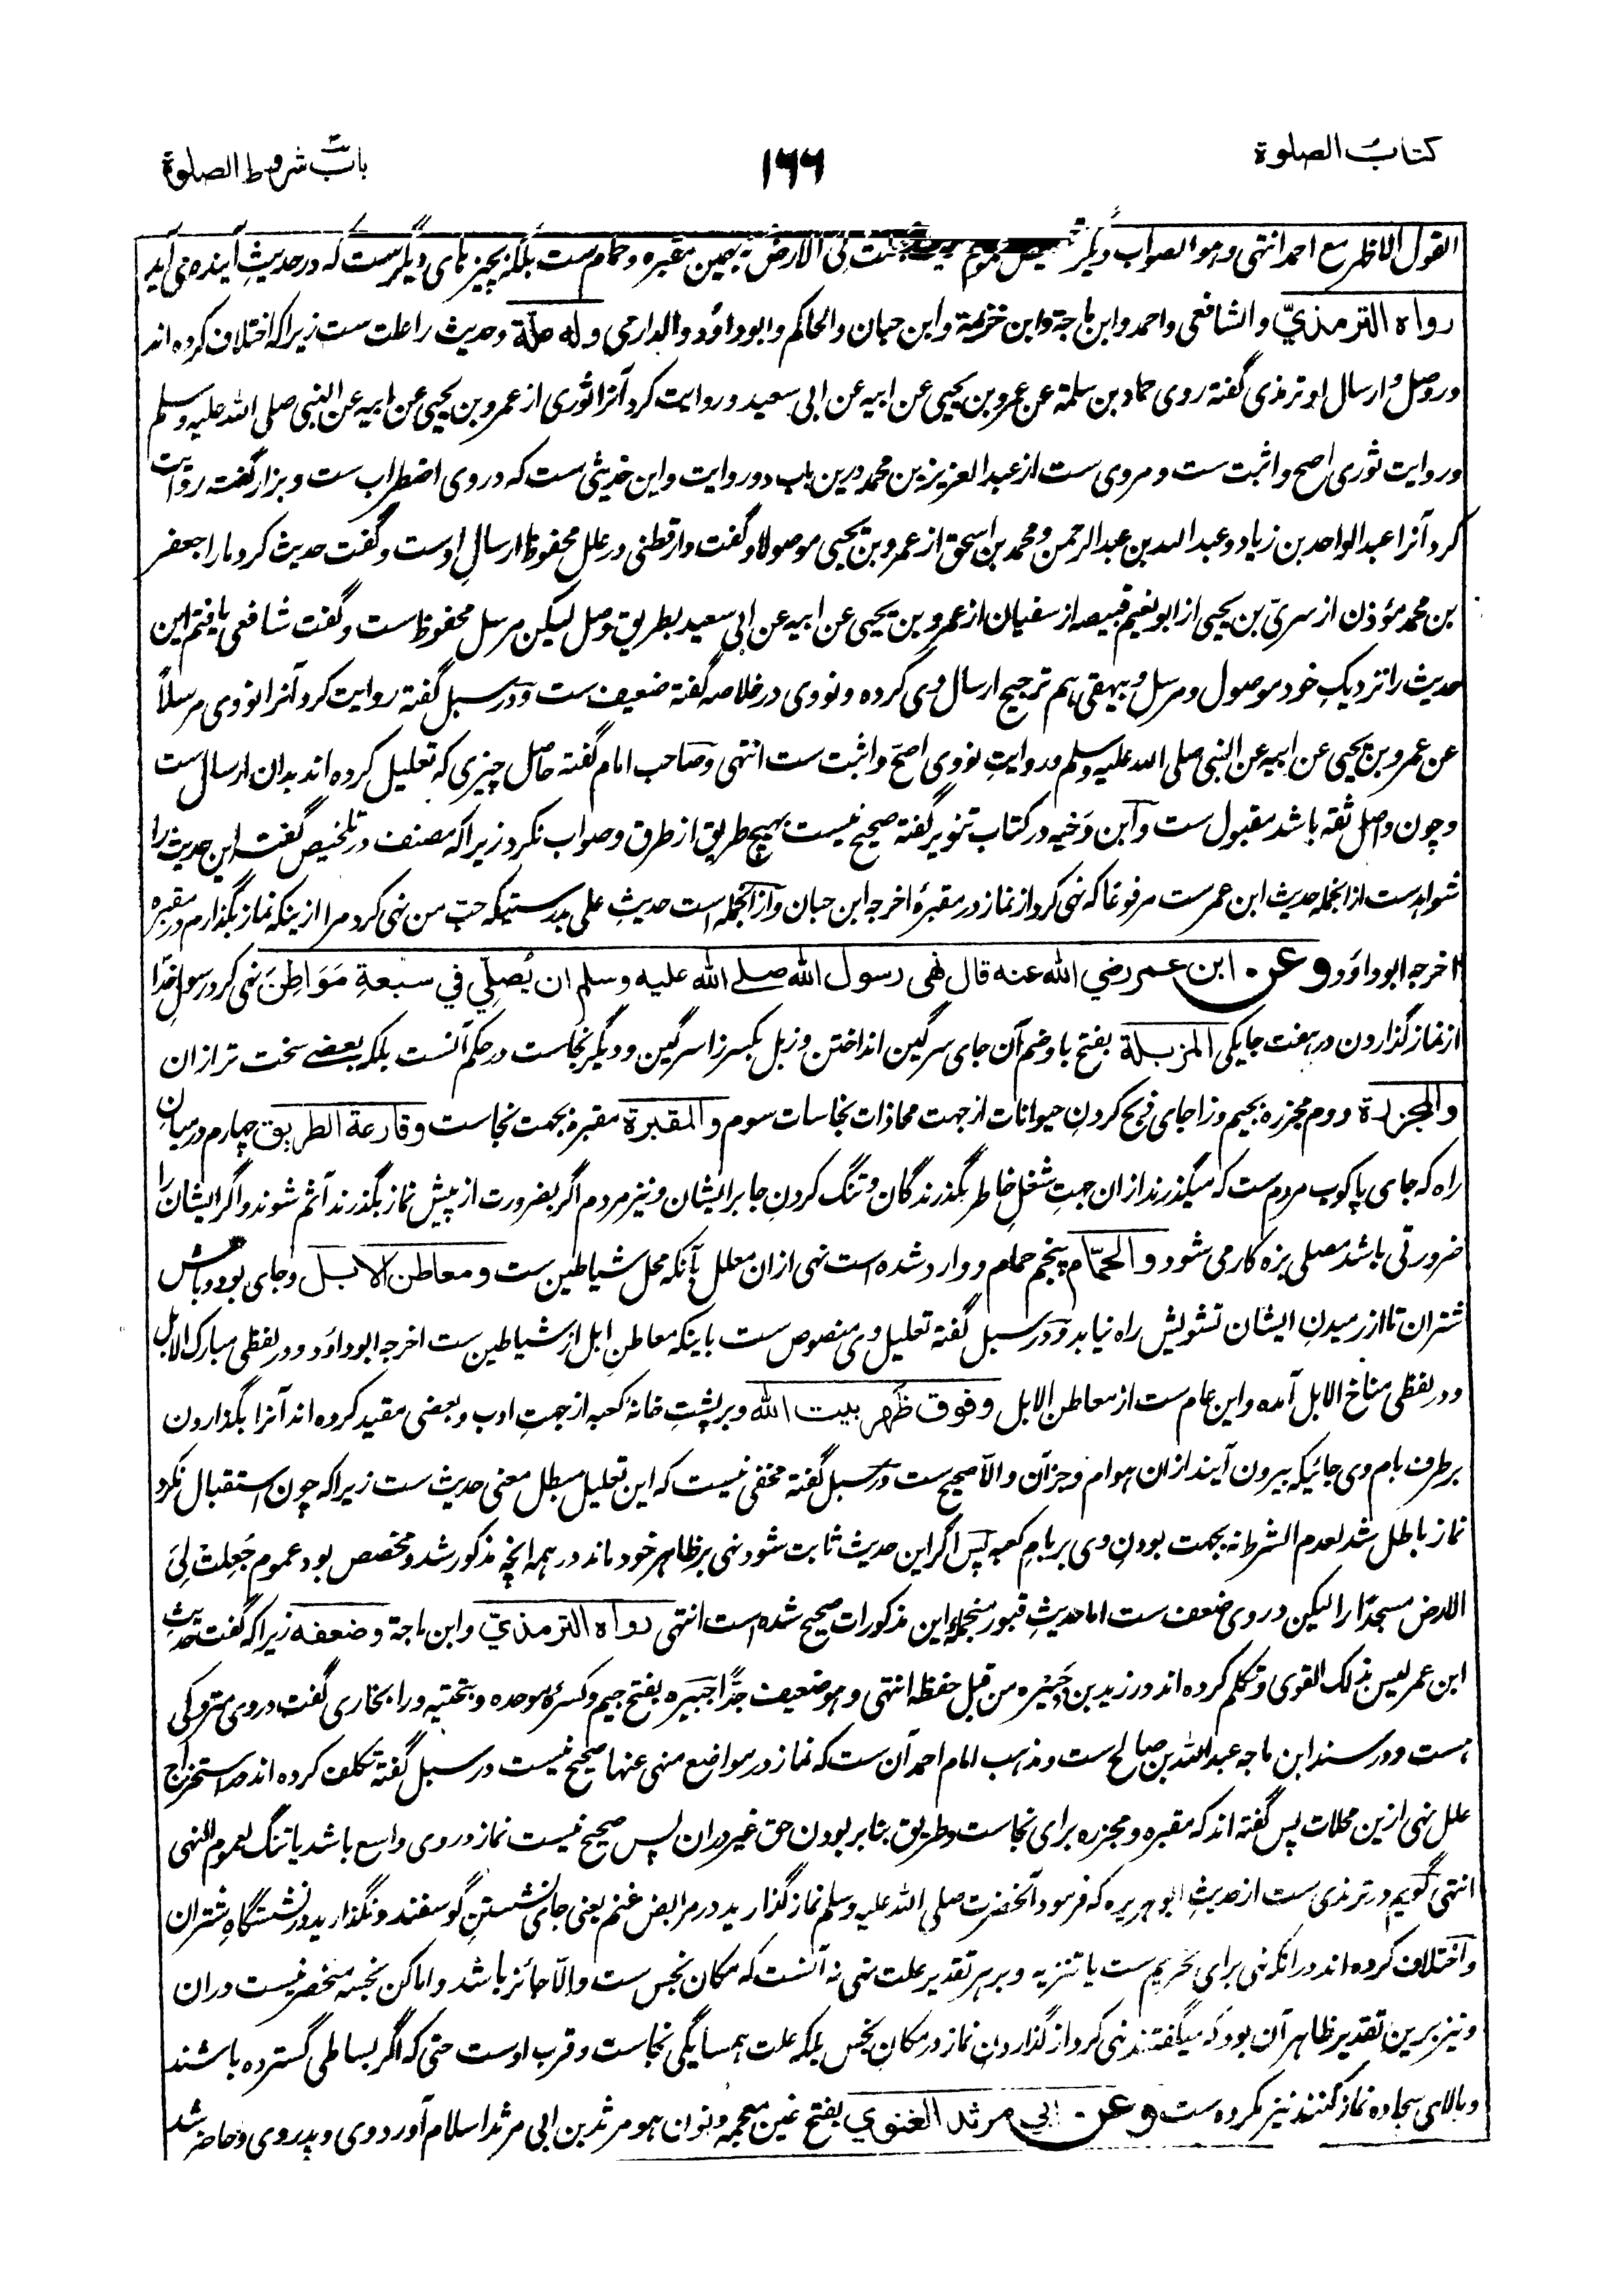 کتاب الصلوة
۱۶۶
باب شروط الصلوة
القول الاظهر مع احمد انتهی وهو الصواب ودیگر تخصیص عموم لی الارض نه بهمین مقبره وحمام ست بلکه بچیزهای دیگر ست که در حدیث آینده می آید
رواه الترمذيّ والشافعی واحمد وابن ماجة وابن خزیمة وابن حبان والحاکم وابوداؤد والدارمی وله علّة وحدیث را علت ست زیراکه اختلاف کرده اند
در وصل و ارسال او ترمذی گفته روی حماد بن سلمة عن عمرو بن یحیی عن ابیه عن ابی سعید و روایت کرد آنرا ثوری از عمرو بن یحیی عن ابیه عن النبی صلی الله علیه وسلم
وروایت ثوری اصح واثبت ست ومروی ست از عبد العزیز بن محمد درین باب دو روایت واین حدیثی ست که در وی اضطراب ست وبزار گفت روایت
کرد آنرا عبد الواحد بن زیاد وعبد الله بن عبد الرحمن ومحمد بن اسحق از عمرو بن یحیی موصولا وگفت دارقطنی در علل محفوظ ارسال اوست وگفت حدیث کرد مارا جعفر
بن محمد مؤذن از سریّ بن یحیی از ابو نعیم قبیصه از سفیان از عمرو بن یحیی عن ابیه عن ابی سعید بطریق وصل لیکن مرسل محفوظ ست وگفت شافعی یافتم این
حدیث را نزدیک خود موصول ومرسل وبیهقی هم ترجیح ارسال وی کرده ونووی در خلاصه گفته ضعیف ست ودر سبل گفته روایت کرد آنرا نووی مرسلاً
عن عمرو بن یحیی عن ابیه عن النبی صلی الله علیه وسلم وروایت نووی اصح واثبت ست انتهی وصاحب امام گفته حاصل چیزی که تعلیل کرده اند بدان ارسال ست
وچون واصل ثقه باشد مقبول ست وابن دحیه در کتاب تنویر گفته صحیح نیست بهیچ طریق از طرق وصواب نکرد زیراکه مصنف در تلخیص گفت این حدیث را
شواهدست ازانجمله حدیث ابن عمرست مرفوعا که نهی کرد از نماز در مقبره اخرجه ابن حبان وازانجمله است حدیث علی بدرستیکه حب من نهی کرد مرا از ینکه نماز بگذارم در مقبره
اخرجه ابوداؤد وعن ابن عمر رضي الله عنه قال نهى رسول الله صلے الله عليه وسلم ان يُصلّي في سبعةِ مَوَاطِنَ نهی کرد رسول خدا
از نماز گذاردن در هفت جا یکی المزبلة بفتح با وضم آن جای سرگین انداختن وزبل بکسر زا سرگین ودیگر نجاست در حکم آنست بلکه بعضے سخت تر ازان
والمجزرة دوم مجزره بجیم وزا جای ذبح کردن حیوانات از جهت محاذات نجاسات سوم والمقبرة مقبره بجهت نجاست وقارعة الطريق چهارم در میان
راه که جای پاکوب مردم ست که میگذرند ازان جهت شغل خاطر بگذرندگان وتنگ کردن جا بر ایشان ونیز مردم اگر بضرورت از پیش نماز بگذرند آثم شوند واگر ایشان را
ضرورتی باشد مصلی بزه کار می شود والحمّام پنجم حمام ووارد شده است نهی ازان معلل بآنکه محل شیاطین ست ومعاطن الابل وجای بود وباش
شتران تا از رمیدن ایشان تشویش راه نیابد ودر سبل گفته تعلیل وی منصوص ست باینکه معاطن ابل از شیاطین ست اخرجه ابوداؤد ودر لفظی مبارک الابل
ودر لفظی مناخ الابل آمده واین عام ست از معاطن الابل وفوق ظهر بيت الله وبر پشت خانه کعبه از جهت ادب وبعضی مقید کرده اند آنرا بگذاردن
بر طرف بام وی جائیکه بیرون آیند ازان هوام وجزآن والا صحیح ست در سبل گفته مخفی نیست که این تعلیل مبطل معنی حدیث ست زیراکه چون استقبال نکرد
نماز باطل شد لعدم الشرط نه بجهت بودن وی بر بام کعبه پس اگر این حدیث ثابت شود نهی بر ظاهر خود ماند در همه انچه مذکور شد ومخصص بود عموم جُعِلَتْ لِیَ
الارض مسجدًا را لیکن در وی ضعف ست اما حدیث قبور منجمله این مذکورات صحیح شده است انتهی رواه الترمذيّ وابن ماجة وضعفه زیراکه گفت حدیث
ابن عمر لیس بذلک القوی وتکلم کرده اند در زید بن جَبِیره من قبل حفظه انتهی وهو ضعیف جدًّا جبیره بفتح جیم وکسره موحده وبتحتیه ورا بخاری گفت در وی متروکی
هست ودر سند ابن ماجه عبد الله بن صالح ست ومذهب امام احمد آن ست که نماز در مواضع منهی عنها صحیح نیست در سبل گفته تکلف کرده اند در استخراج
علل نهی ازین محلات پس گفته اند که مقبره ومجزره برای نجاست وطریق بنابر بودن حق غیر دران پس صحیح نیست نماز در وی واسع باشد یا تنگ لعموم النهی
انتهی گویم در ترمذی ست از حدیث ابوهریره که فرمود آنحضرت صلی الله علیه وسلم نماز گذارید در مرابض غنم یعنی جای نشستن گوسفند ونگذارید در نشستگاه شتران
واختلاف کرده اند درانکه نهی برای تحریم ست یا تنزیه وبر هر تقدیر علت نهی نه آنست که مکان نجس ست والّا جائز باشد واماکن نجسه منحصر نیست دران
ونیز برین تقدیر ظاهر آن بود که میگفتند نهی کرد از گذاردن نماز در مکان نجس بلکه علت همسایگی نجاست وقرب اوست حتی که اگر بساطی گسترده باشند
وبالای سجاده نماز کنند نیز مکروه ست وعن ابي مرثد الغنوي بفتح غین معجمه ونون هو مرثد بن ابی مرثد اسلام آورد وی وپدر وی وحاضر شد